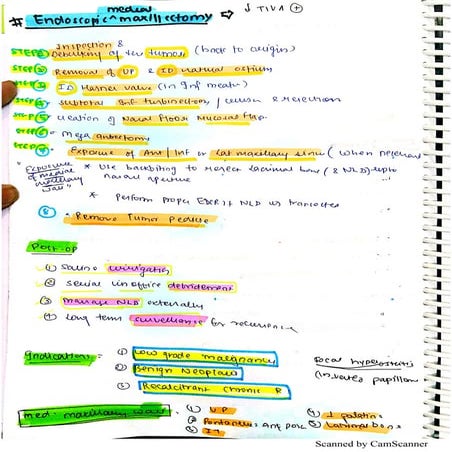 # Endoscopic ^ medial maxillectomy ⇒ ↓ TIVA ⊕
STEP ① Inspection & Debulking of the tumour (back to origin)
STEP ② Removal of UP & ID natural ostium
STEP ③ ID Hasner valve (in Inf meatus)
STEP ④ Subtotal Inf turbinectomy / crush & resection
STEP ⑤ creation of Nasal Floor Mucosal Flap
STEP ⑥ Mega antrostomy
STEP ⑦ Exposure of Ant/Inf or Lat maxillary sinus (when relevant
"Exposure of medial maxillary wall" * Use backbiting to resect lacrimal bone (& NLD) upto
aperture
* Perform proper if NLD is transected
⑧ • Remove Tumor Pedicle
Post-op
① Saline irrigation
② serial in office debridement
③ Massage NLD externally
④ Long term surveillance for recurrence
Indication:
① Low grade malignancy
② Benign Neoplasm
③ Recalcitrant chronic R
focal hyperostosis
(inverted papilloma
Med. maxillary wall:
① UP
② Fontanelles Ant post
③ IT
④ ⊥ palatine
⑤ Lacrimal bone
Scanned by CamScanner